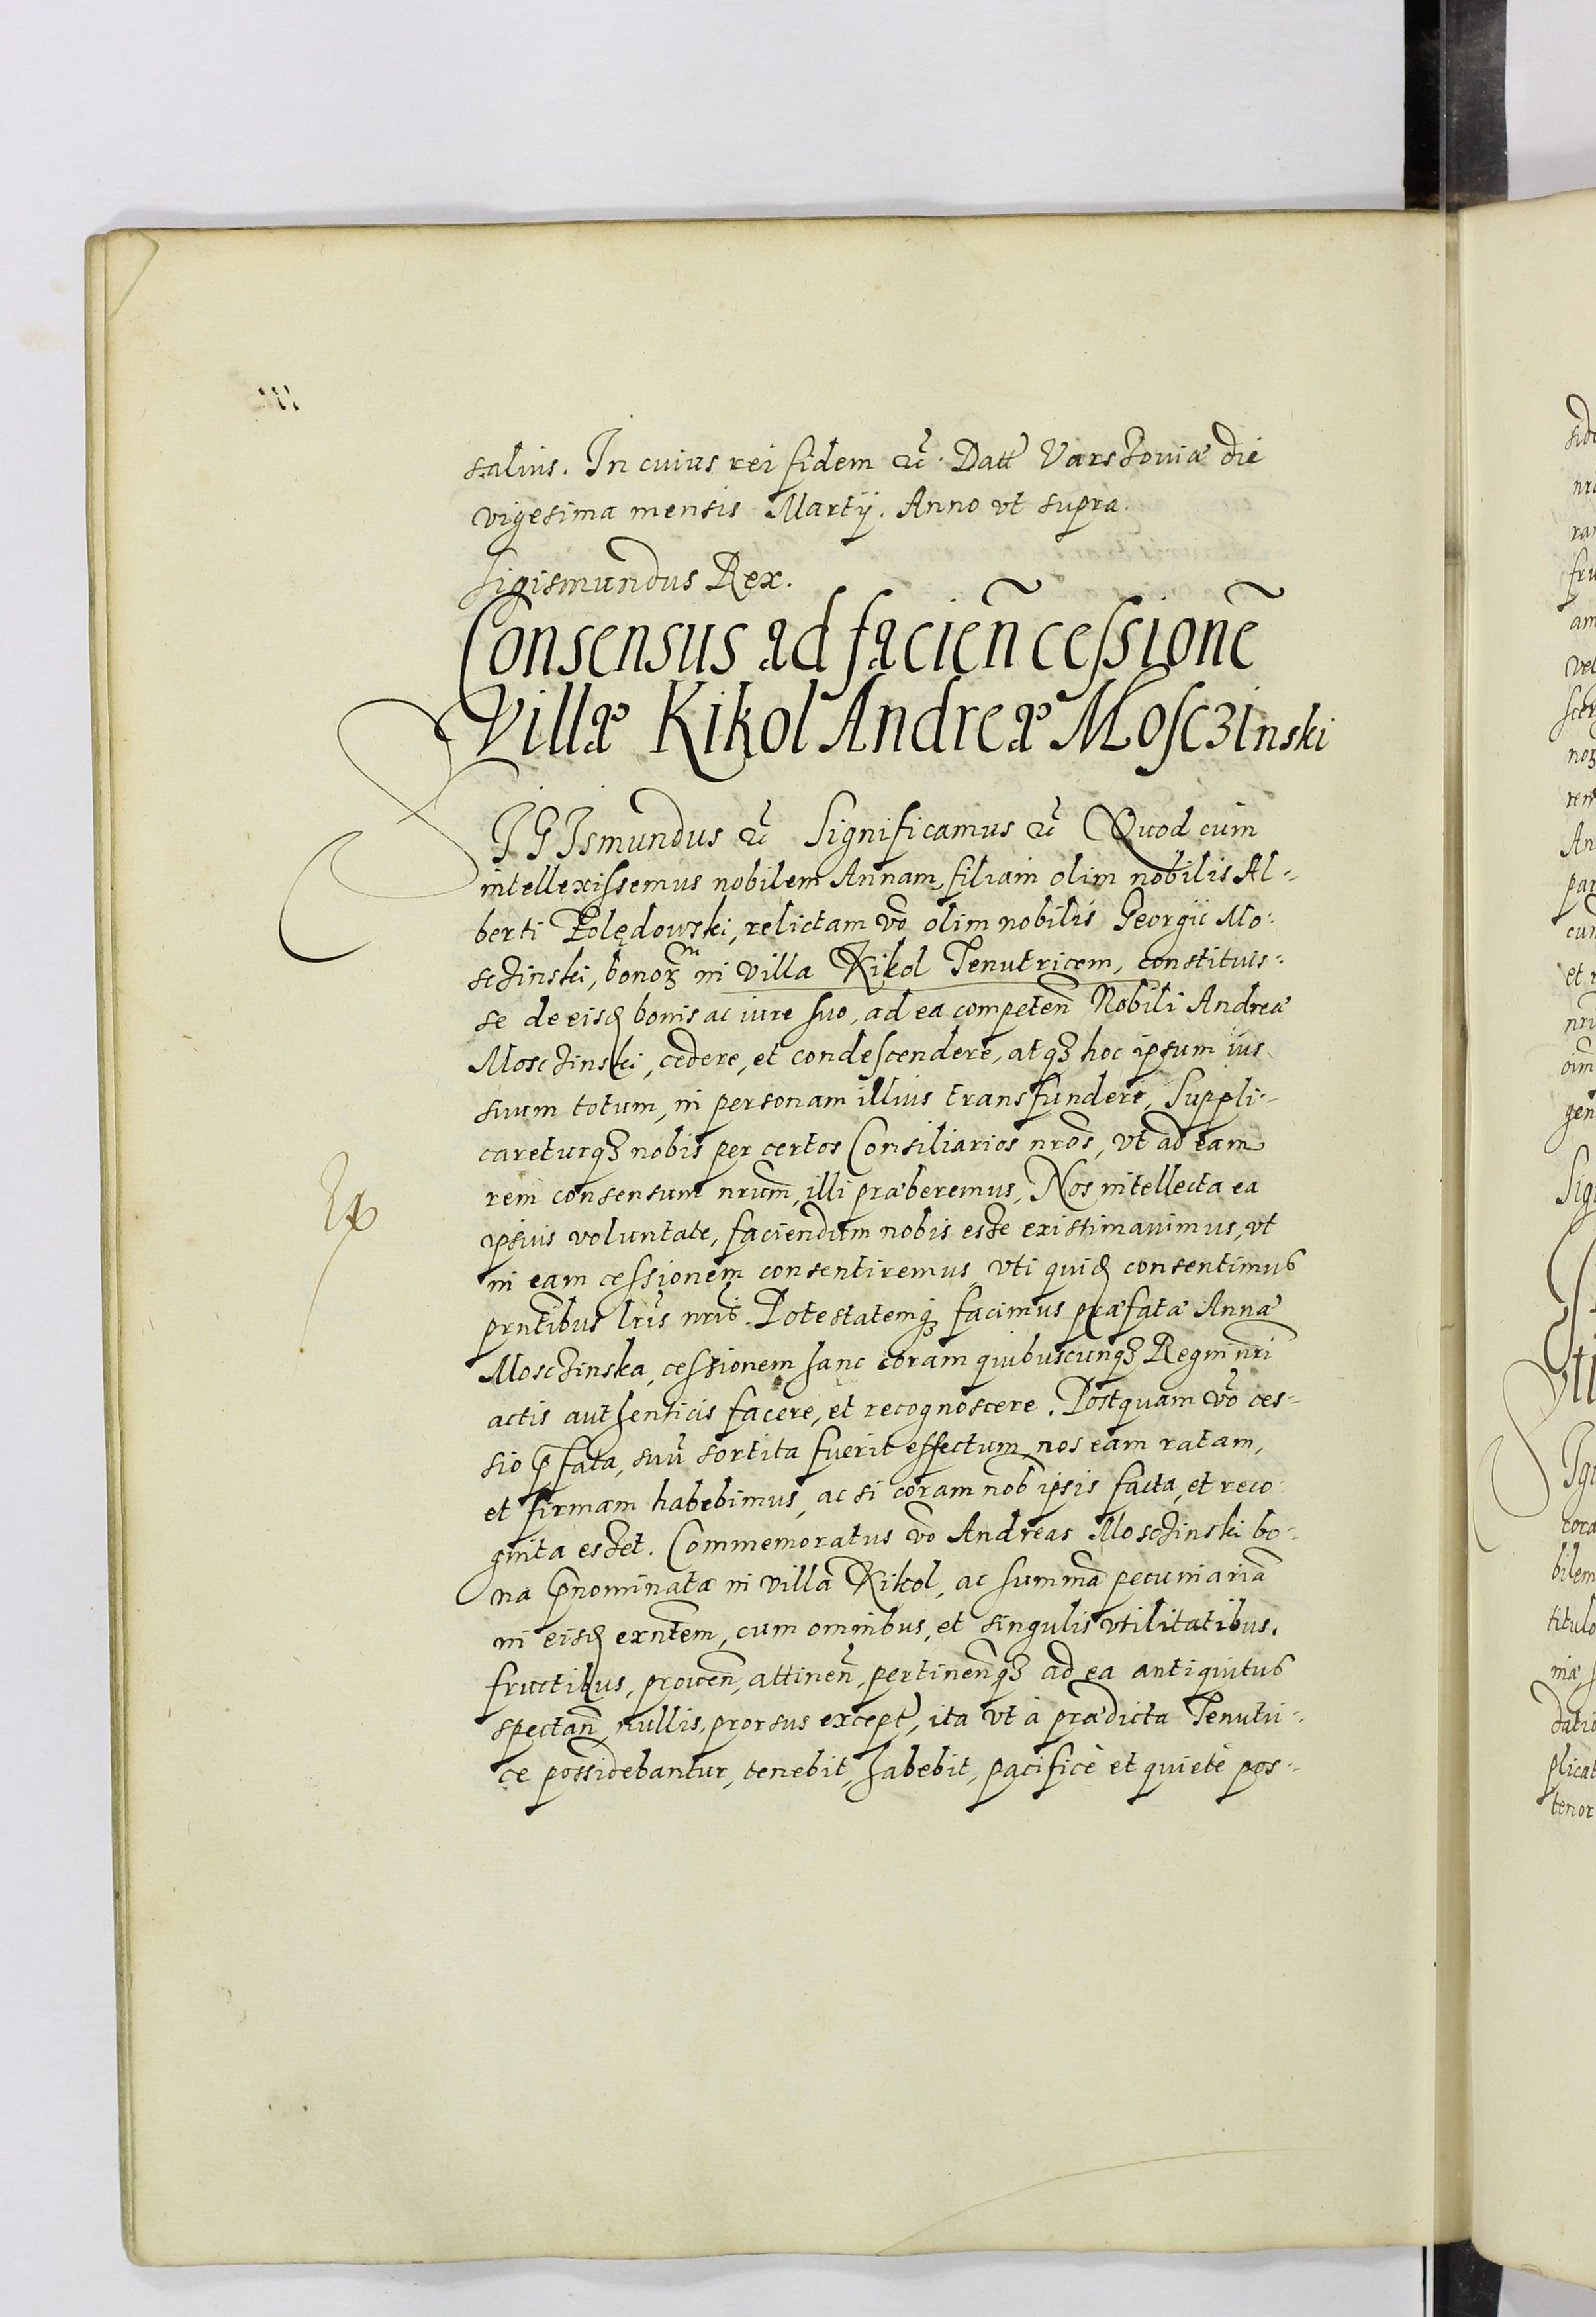 salius. In cuius rei fidem etc̃. Datt̃ Varszouiæ die
vigesima mensis Martij. Anno vt supra.
Sigismundus Rex.
Consensus ad facień cessionẽ
Villæ Kikol Andreæ Mosczinski
SIGIsmundus etc̃ Significamus etc̃ Quod cum
intellexissemus nobilem Annam, filiam olim nobilis Al-
berti Polędowski, relictam võ olim nobilis Georgii Mo-
sczinski, bonoꝝ in villa Kikol Tenutricem, constituis-
se de eisd bonis ac iure suo, ad ea competeñ Nobili Andreæ
Mosczinski, cedere, et condescendere, atqꝫ hoc ipsum ius
suum totum, in personam illius transfundere, Suppli-
careturqꝫ nobis per certos Consiliarios nr̃os, vt ad eam
rem consensum nr̃um, illi præberemus, Nos intellecta ea
ipsius voluntate, faciendum nobis esse existimauimus, vt
in eam cessionem consentiremus, vti quid consentimus
prñtibus lr̃is nr̃is. Potestatemqꝫ facimus præfatæ Annæ
Mosczinska, cessionem hanc coram quibuscunqꝫ Regni nr̃i
actis authenticis facere, et recognoscere. Postquam võ ces-
sio p̃fata, suũ sortita fuerit effectum, nos eam ratam,
et firmam habebimus, ac si coram nob ipsis facta, et reco-
gnita esset. Commemoratus võ Andreas Mosczinski bo-
na p̃nominata in villa Kikol, ac summã pecuniariã
in eisd exñtem, cum omnibus, et singulis vtilitatibus,
fructibus, proueñ, attineñ, pertineñqꝫ ad ea antiquitus
spectañ, nullis prorsus except̃, ita vt à prædicta Tenutri-
ce possidebantur, tenebit, habebit, pacificè et quietè pos-